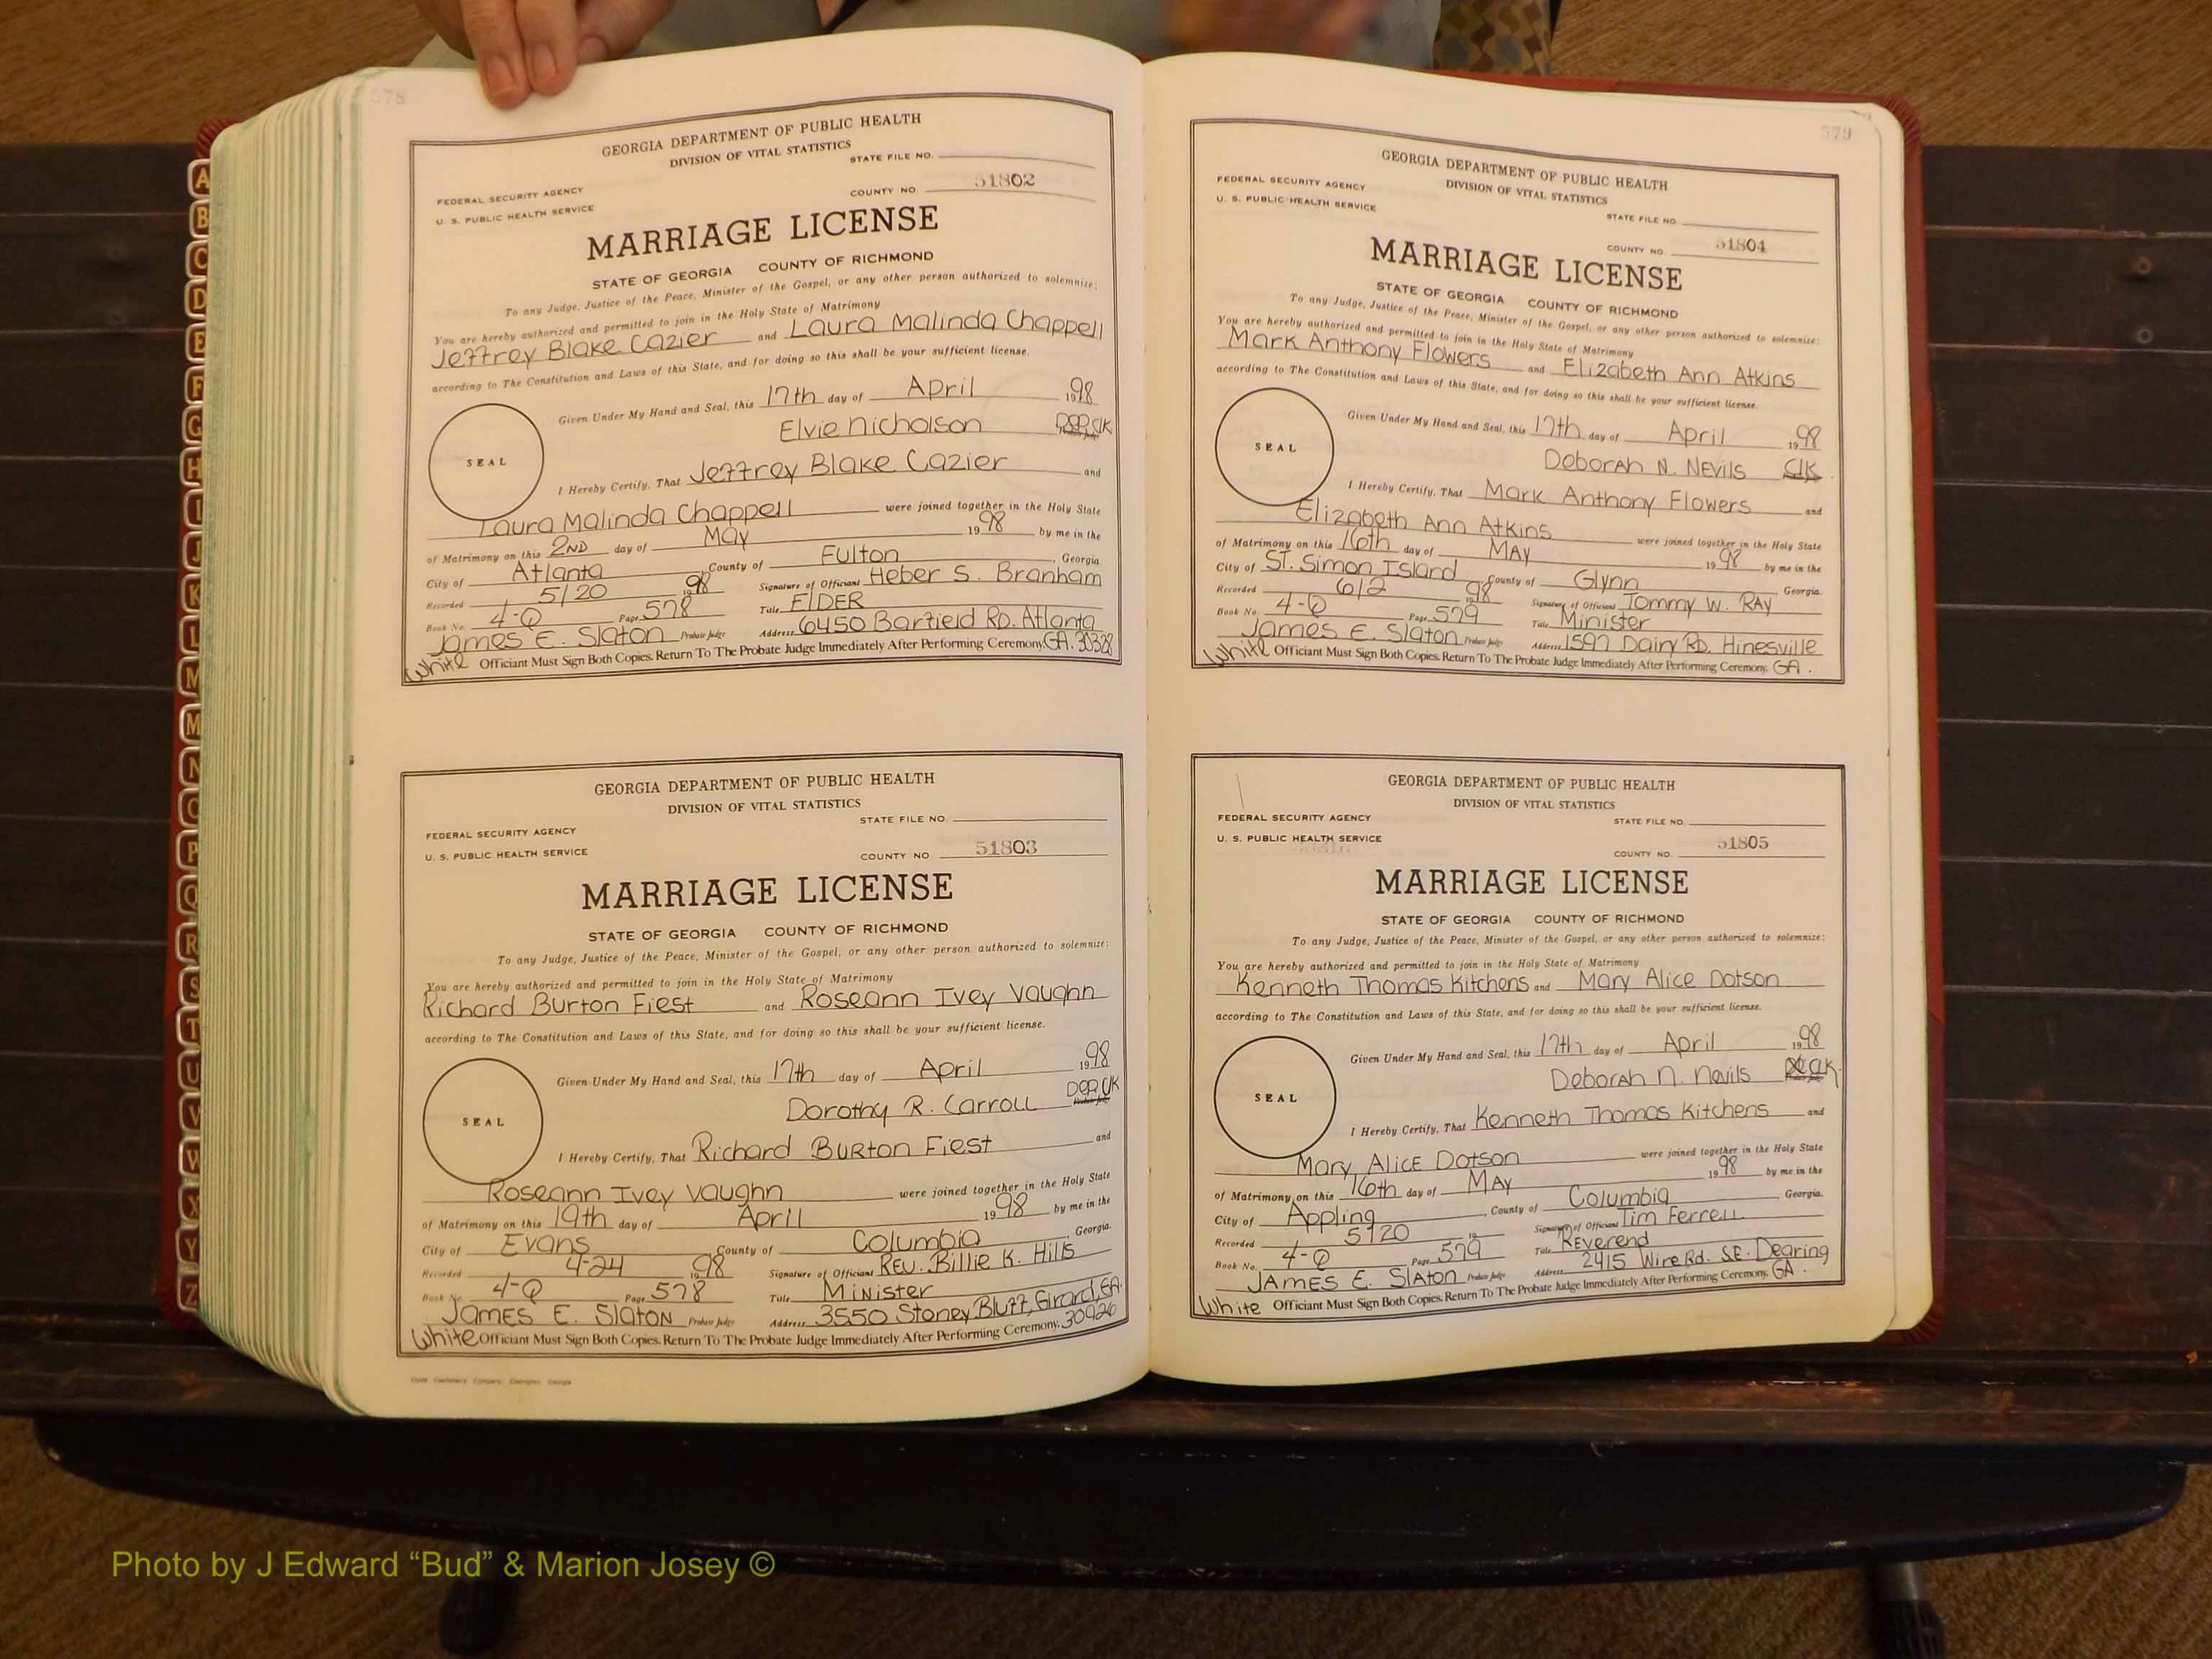 578
GEORGIA DEPARTMENT OF PUBLIC HEALTH
DIVISION OF VITAL STATISTICS
STATE FILE NO.
FEDERAL SECURITY AGENCY
COUNTY NO. 51802
U. S. PUBLIC HEALTH SERVICE
MARRIAGE LICENSE
STATE OF GEORGIA COUNTY OF RICHMOND
To any Judge, Justice of the Peace, Minister of the Gospel, or any other person authorized to solemnize:
You are hereby authorized and permitted to join in the Holy State of Matrimony
Jeffrey Blake Cazier and Laura Malinda Chappell
according to The Constitution and Laws of this State, and for doing so this shall be your sufficient license.
Given Under My Hand and Seal, this 17th day of April 1998
Elvie Nicholson Dep Clk
SEAL
I Hereby Certify, That Jeffrey Blake Cazier and
Laura Malinda Chappell were joined together in the Holy State
of Matrimony on this 2ND day of May 1998 by me in the
City of Atlanta County of Fulton, Georgia
Recorded 5/20 1998 Signature of Officiant Heber S. Branham
Book No. 4-Q Page 578 Title ElDER
James E. Slaton Probate Judge Address 6450 Barfield RD. Atlanta
White Officiant Must Sign Both Copies. Return To The Probate Judge Immediately After Performing Ceremony. GA. 30328
GEORGIA DEPARTMENT OF PUBLIC HEALTH
DIVISION OF VITAL STATISTICS
STATE FILE NO.
FEDERAL SECURITY AGENCY
U. S. PUBLIC HEALTH SERVICE
COUNTY NO 51803
MARRIAGE LICENSE
STATE OF GEORGIA COUNTY OF RICHMOND
To any Judge, Justice of the Peace, Minister of the Gospel, or any other person authorized to solemnize:
You are hereby authorized and permitted to join in the Holy State of Matrimony
Richard Burton Fiest and Roseann Ivey Vaughn
according to The Constitution and Laws of this State, and for doing so this shall be your sufficient license.
Given Under My Hand and Seal, this 17th day of April 1998
Dorothy R. Carroll Dep Clk
SEAL
I Hereby Certify, That Richard Burton Fiest and
Roseann Ivey Vaughn were joined together in the Holy State
of Matrimony on this 19th day of April 1998 by me in the
City of Evans County of Columbia, Georgia.
Recorded 4-24 1998 Signature of Officiant Rev. Billie K. Hills
Book No. 4-Q Page 578 Title Minister
James E. Slaton Probate Judge Address 3550 Stoney Bluff, Girard, GA.
White Officiant Must Sign Both Copies. Return To The Probate Judge Immediately After Performing Ceremony. 30926
579
GEORGIA DEPARTMENT OF PUBLIC HEALTH
DIVISION OF VITAL STATISTICS
FEDERAL SECURITY AGENCY
U. S. PUBLIC HEALTH SERVICE
STATE FILE NO.
COUNTY NO. 51804
MARRIAGE LICENSE
STATE OF GEORGIA COUNTY OF RICHMOND
To any Judge, Justice of the Peace, Minister of the Gospel, or any other person authorized to solemnize:
You are hereby authorized and permitted to join in the Holy State of Matrimony
Mark Anthony Flowers and Elizabeth Ann Atkins
according to The Constitution and Laws of this State, and for doing so this shall be your sufficient license.
Given Under My Hand and Seal, this 17th day of April 1998
Deborah N. Nevils Clk
SEAL
I Hereby Certify, That Mark Anthony Flowers and
Elizabeth Ann Atkins were joined together in the Holy State
of Matrimony on this 16th day of May 1998 by me in the
City of St. Simon Island County of Glynn Georgia.
Recorded 6/2 1998 Signature of Officiant Tommy W. Ray
Book No. 4-Q Page 579 Title Minister
James E. Slaton Probate Judge Address 1597 Dairy RD. Hinesville
White Officiant Must Sign Both Copies. Return To The Probate Judge Immediately After Performing Ceremony. GA.
GEORGIA DEPARTMENT OF PUBLIC HEALTH
DIVISION OF VITAL STATISTICS
FEDERAL SECURITY AGENCY
STATE FILE NO.
U. S. PUBLIC HEALTH SERVICE
COUNTY NO. 51805
MARRIAGE LICENSE
STATE OF GEORGIA COUNTY OF RICHMOND
To any Judge, Justice of the Peace, Minister of the Gospel, or any other person authorized to solemnize:
You are hereby authorized and permitted to join in the Holy State of Matrimony
Kenneth Thomas Kitchens and Mary Alice Dotson
according to The Constitution and Laws of this State, and for doing so this shall be your sufficient license.
Given Under My Hand and Seal, this 17th day of April 1998
Deborah N. Nevils Clk
SEAL
I Hereby Certify, That Kenneth Thomas Kitchens and
Mary Alice Dotson were joined together in the Holy State
of Matrimony on this 16th day of May 1998 by me in the
City of Appling, County of Columbia Georgia.
Recorded 5/20 19 Signature of Officiant Tim Ferrell
Book No. 4-Q Page 579 Title Reverend
James E. Slaton Probate Judge Address 2415 Wire Rd. SE. Dearing
White Officiant Must Sign Both Copies. Return To The Probate Judge Immediately After Performing Ceremony. GA.
A
B
C
D
E
F
G
H
I
J
K
L
M
M
N
O
P
Q
R
S
T
U
V
W
X
Y
Z
Photo by J Edward “Bud” & Marion Josey ©